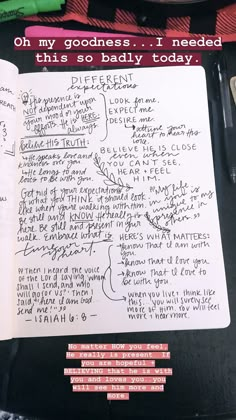 Oh my goodness...I needed
this so badly today.
DIFFERENT
expectations
His presence is
NOT dependent upon
your mood or your
efforts. He is HERE
always.
LOOK for me.
EXPECT me.
DESIRE me.
→ attune your
heart to hear His
voice.
believe His TRUTH:
→ He speaks love and
kindness over you
→ He longs to and
loves to be with you.
BELIEVE HE IS CLOSE
even when
YOU CAN'T SEE,
HEAR + FEEL
HIM.
Get rid of your expectations
of what you THINK it should look
like when you're walking with him.
Be still and KNOW He really is
here. Be still and present in your
walk. Embrace what is.
Tune your
heart.
"My life is
immune to my
presence in
you."
HERE'S WHAT MATTERS:
→ Know that I am with
you.
→ Know that I love you
→ Know that I love to
be with you.
"Then I heard the voice
of the Lord saying, whom
shall I send, and who
will go for us? Then I
said, "here I am. Send
me!""
- ISAIAH 6:8 -
→ When you live + think like
this... you will surely see
more of Him. You will feel
more + hear more.
No matter HOW you feel,
He really is present. If
you are hopeful +
BELIEVING that he is with
you and loves you..you
will see him more and
more.